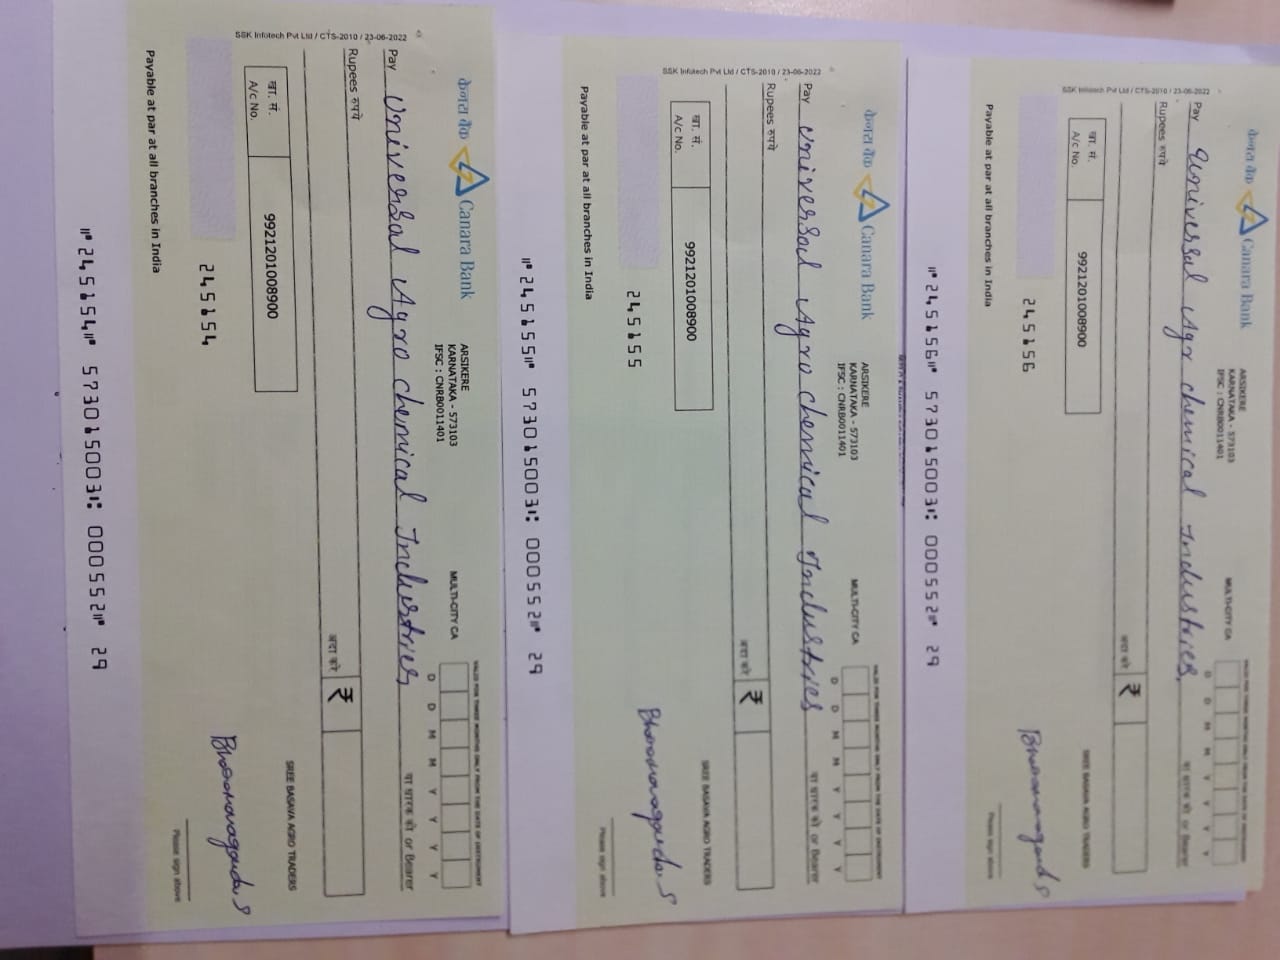 SSK Infotech Pvt Ltd / CTS-2010 / 23-06-2022
केनरा बैंक Canara Bank
ARSIKERE
KARNATAKA - 573103
IFSC : CNRB0011401
MULTI-CITY CA
VALID FOR THREE MONTHS ONLY FROM THE DATE OF INSTRUMENT
D D M M Y Y Y Y
Pay Universal Agro chemical Industries या धारक को or Bearer
Rupees रुपये
अदा करें ₹
खा. सं.
A/c No.
9921201008900
SREE BASAVA AGRO TRADERS
245154
Please sign above
Payable at par at all branches in India
⑈245154⑈ 573015003⑆ 000552⑈ 29
SSK Infotech Pvt Ltd / CTS-2010 / 23-06-2022
केनरा बैंक Canara Bank
ARSIKERE
KARNATAKA - 573103
IFSC : CNRB0011401
MULTI-CITY CA
VALID FOR THREE MONTHS ONLY FROM THE DATE OF INSTRUMENT
D D M M Y Y Y Y
Pay Universal Agro chemical Industries या धारक को or Bearer
Rupees रुपये
अदा करें ₹
खा. सं.
A/c No.
9921201008900
SREE BASAVA AGRO TRADERS
245155
Please sign above
Payable at par at all branches in India
⑈245155⑈ 573015003⑆ 000552⑈ 29
SSK Infotech Pvt Ltd / CTS-2010 / 23-06-2022
केनरा बैंक Canara Bank
ARSIKERE
KARNATAKA - 573103
IFSC : CNRB0011401
MULTI-CITY CA
VALID FOR THREE MONTHS ONLY FROM THE DATE OF INSTRUMENT
D D M M Y Y Y Y
Pay Universal Agr chemical Industries या धारक को or Bearer
Rupees रुपये
अदा करें ₹
खा. सं.
A/c No.
9921201008900
SREE BASAVA AGRO TRADERS
245156
Please sign above
Payable at par at all branches in India
⑈245156⑈ 573015003⑆ 000552⑈ 29